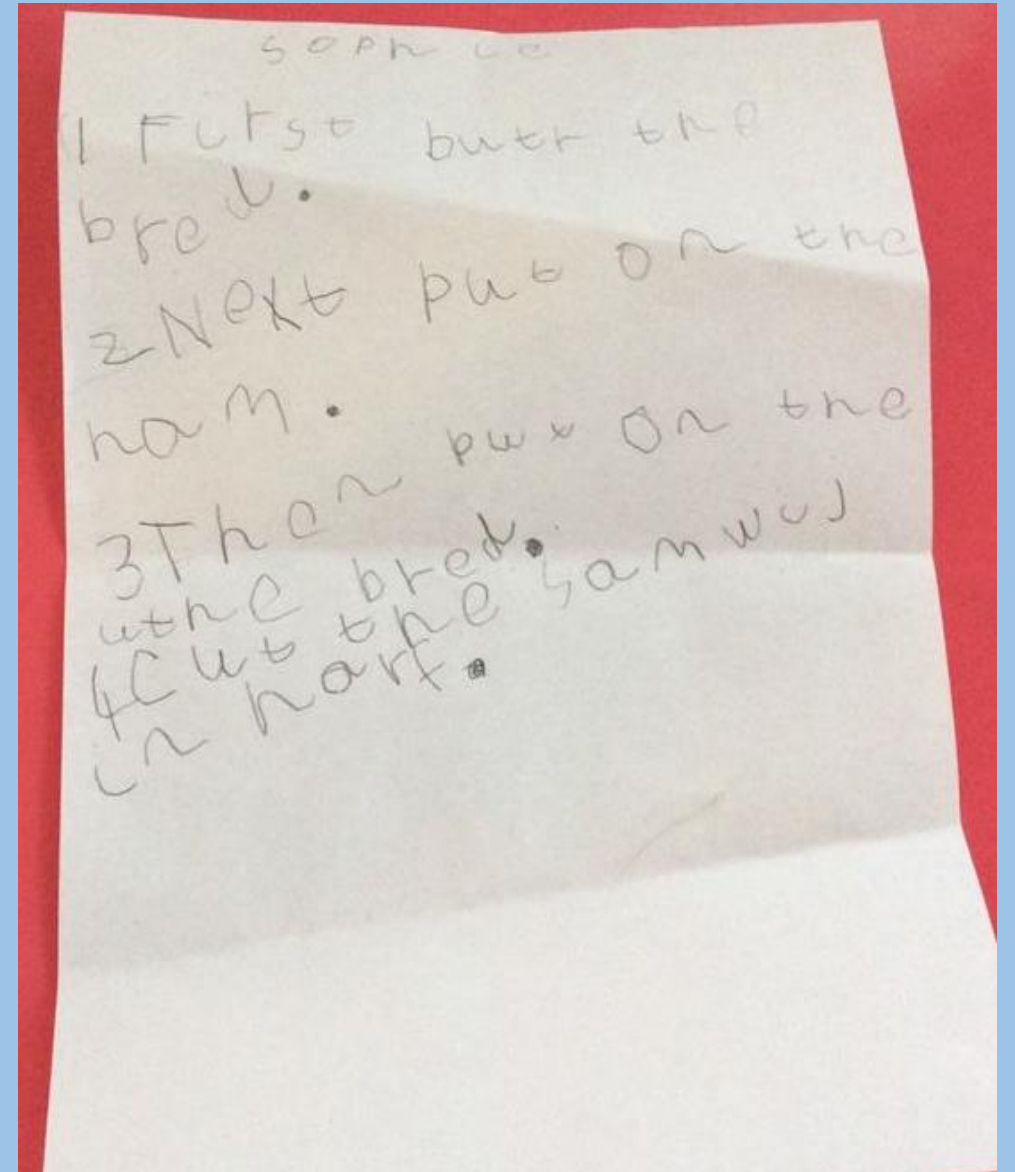 sophie
1 First butr the
bred.
2 Next put on the
ham.
3 Then put on the
uthe bred.
4 Cut the samwij
in harf.